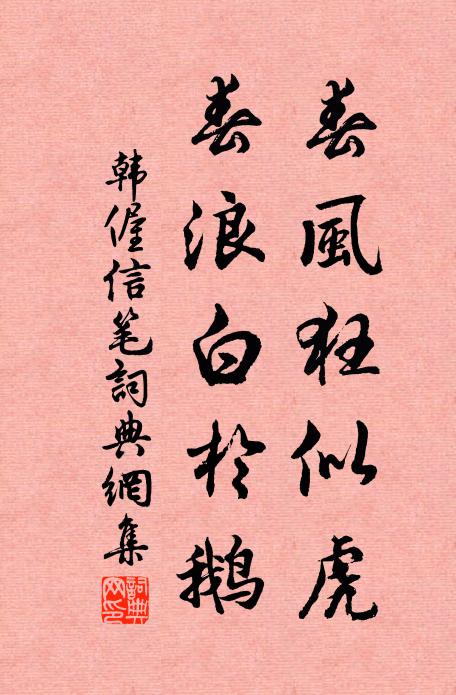 春風狂似虎
春浪白於鹅
韩偓信笔詞典網集
詞典网印